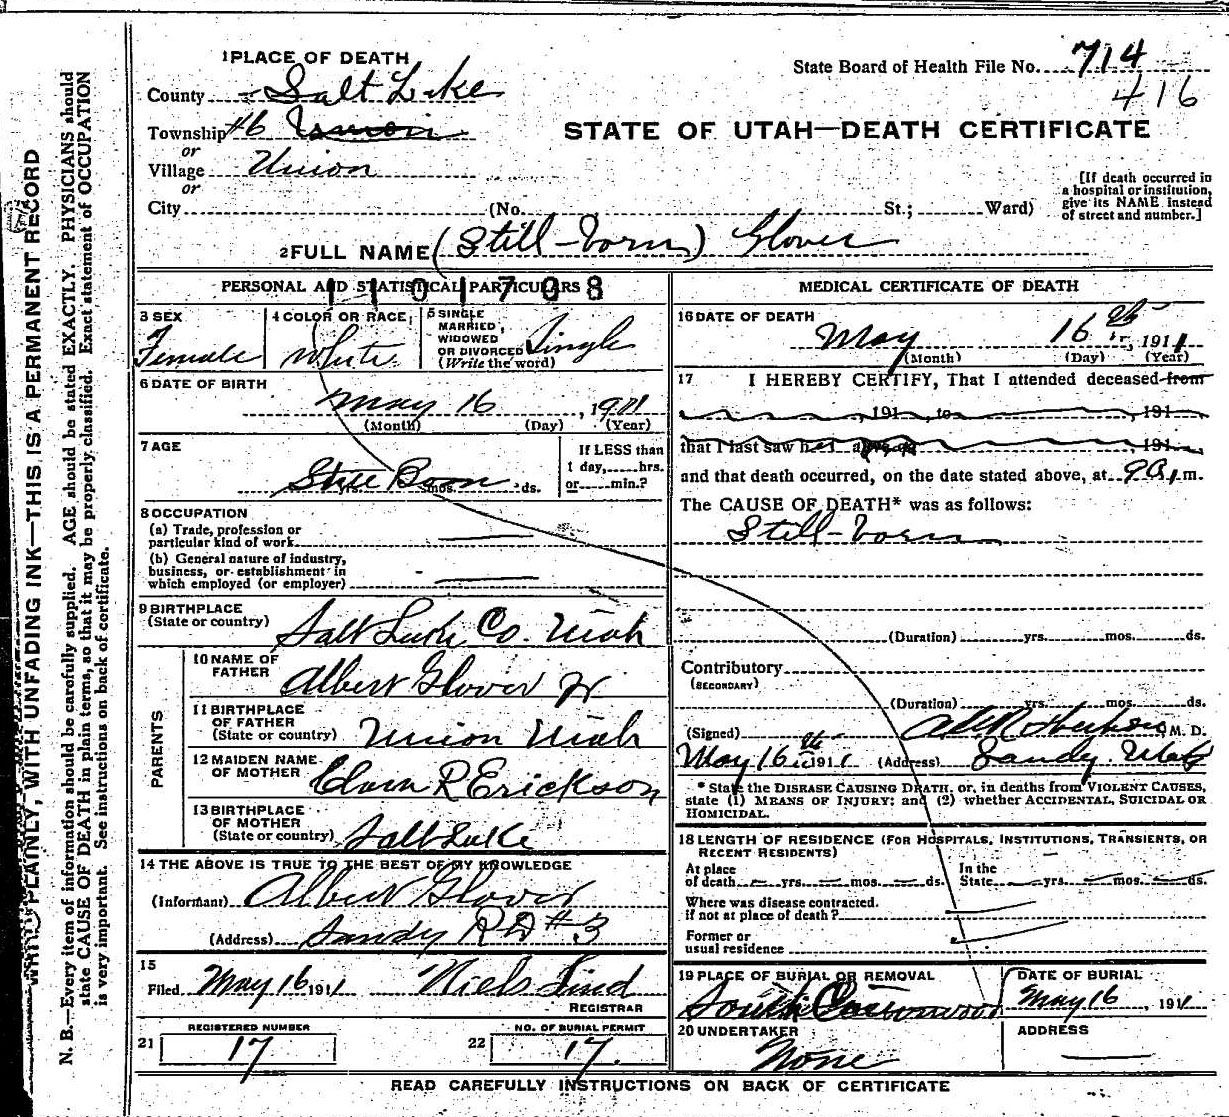 1 PLACE OF DEATH
State Board of Health File No. 714
416
County Salt Lake
Township #6 Union
or
Village Union
or
City (No. St.; Ward)
STATE OF UTAH—DEATH CERTIFICATE
[If death occurred in
a hospital or institution,
give its NAME instead
of street and number.]
2 FULL NAME (Still-born) Glover
PERSONAL AND STATISTICAL PARTICULARS
1101708
3 SEX
Female
4 COLOR OR RACE
White
5 SINGLE
MARRIED,
WIDOWED
OR DIVORCED
(Write the word)
Single
6 DATE OF BIRTH
May 16, 1911
(Month) (Day) (Year)
7 AGE
Still Born
yrs. mos. ds.
If LESS than
1 day, hrs.
or min.?
8 OCCUPATION
(a) Trade, profession or
particular kind of work
(b) General nature of industry,
business, or establishment in
which employed (or employer)
9 BIRTHPLACE
(State or country)
Salt Lake Co. Utah
PARENTS
10 NAME OF
FATHER
Albert Glover Jr
11 BIRTHPLACE
OF FATHER
(State or country)
Union Utah
12 MAIDEN NAME
OF MOTHER
R Erickson
13 BIRTHPLACE
OF MOTHER
(State or country)
Salt Lake
14 THE ABOVE IS TRUE TO THE BEST OF MY KNOWLEDGE
(Informant) Albert Glover
(Address) Sandy RD #3
15
Filed May 16 1911 Niels Lind
REGISTRAR
REGISTERED NUMBER
21 17
NO. OF BURIAL PERMIT
22 17.
MEDICAL CERTIFICATE OF DEATH
16 DATE OF DEATH
May 16th, 1911
(Month) (Day) (Year)
17 I HEREBY CERTIFY, That I attended deceased from
, 191 , to , 191
that I last saw h alive on , 191
and that death occurred, on the date stated above, at 9 A. m.
The CAUSE OF DEATH* was as follows:
Still-born
(Duration) yrs. mos. ds.
Contributory
(SECONDARY)
(Duration) yrs. mos. ds.
(Signed) M. D.
May 16th 1911 (Address) Sandy. Utah
* State the DISEASE CAUSING DEATH, or, in deaths from VIOLENT CAUSES,
state (1) MEANS OF INJURY; and (2) whether ACCIDENTAL, SUICIDAL OR
HOMICIDAL.
18 LENGTH OF RESIDENCE (FOR HOSPITALS, INSTITUTIONS, TRANSIENTS, OR
RECENT RESIDENTS)
At place
of death yrs. mos. ds.
In the
State yrs. mos. ds.
Where was disease contracted.
if not at place of death?
Former or
usual residence
19 PLACE OF BURIAL OR REMOVAL
South Cottonwood
DATE OF BURIAL
May 16, 1911
20 UNDERTAKER
None
ADDRESS
READ CAREFULLY INSTRUCTIONS ON BACK OF CERTIFICATE
WRITE PLAINLY, WITH UNFADING INK—THIS IS A PERMANENT RECORD
N. B.—Every item of information should be carefully supplied. AGE should be stated EXACTLY. PHYSICIANS should
state CAUSE OF DEATH in plain terms, so that it may be properly classified. Exact statement of OCCUPATION
is very important. See instructions on back of certificate.